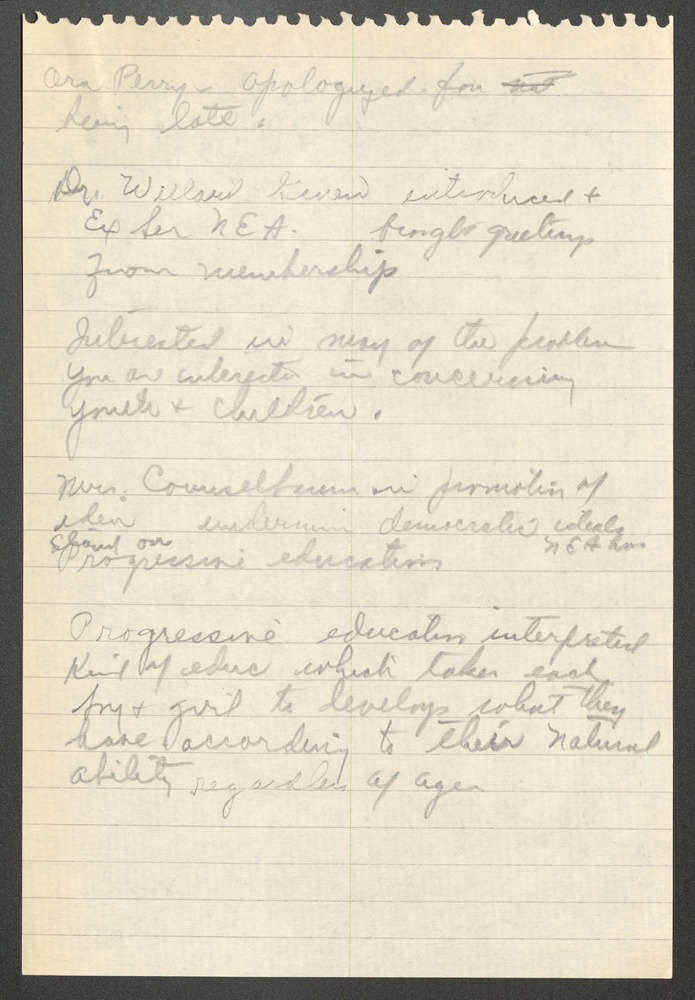 Ora Perry - apologized for not
being late.
Dr. Willard Given introduced +
Ex Sec NEA. brought greetings
From membership
Interested in many of the problem
you are interested in concerning
youth + children.
Mrs. Counselbaum in promotion of
idea undermin democratic ideals
Stand on NEA has
Progressive education
Progressive education interpreted
Kind of educ which takes each
boy + girl to develop what they
have according to their natural
ability regardless of age